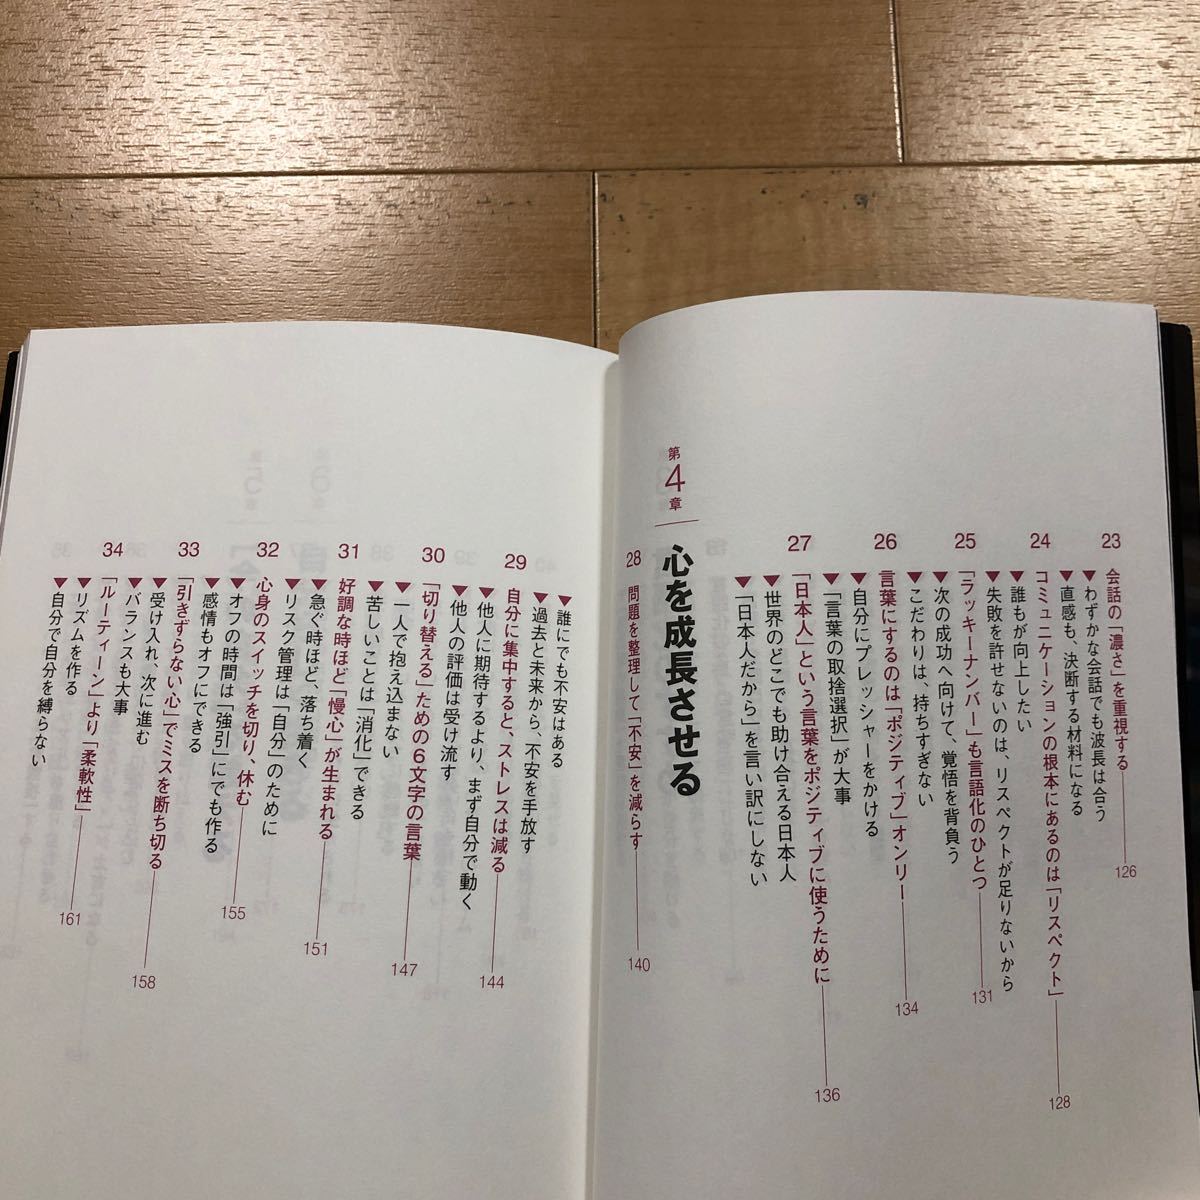 23 会話の「濃さ」を重視する 126
▼わずかな会話でも波長は合う
▼直感も、決断する材料になる
24 コミュニケーションの根本にあるのは「リスペクト」 128
▼誰もが向上したい
▼失敗を許せないのは、リスペクトが足りないから
25 「ラッキーナンバー」も言語化のひとつ 131
▼次の成功へ向けて、覚悟を背負う
▼こだわりは、持ちすぎない
26 言葉にするのは「ポジティブ」オンリー 134
▼自分にプレッシャーをかける
▼「言葉の取捨選択」が大事
27 「日本人」という言葉をポジティブに使うために 136
▼世界のどこでも助け合える日本人
▼「日本人だから」を言い訳にしない
第4章 心を成長させる
28 問題を整理して「不安」を減らす 140
▼誰にでも不安はある
▼過去と未来から、不安を手放す
29 自分に集中すると、ストレスは減る 144
▼他人に期待するより、まず自分で動く
▼他人の評価は受け流す
30 「切り替える」ための6文字の言葉 147
▼一人で抱え込まない
▼苦しいことは「消化」できる
31 好調な時ほど「慢心」が生まれる 151
▼急ぐ時ほど、落ち着く
▼リスク管理は「自分」のために
32 心身のスイッチを切り、休む 155
▼オフの時間は「強引」にでも作る
▼感情もオフにできる
33 「引きずらない心」でミスを断ち切る 158
▼受け入れ、次に進む
▼バランスも大事
34 「ルーティーン」より「柔軟性」 161
▼リズムを作る
▼自分で自分を縛らない